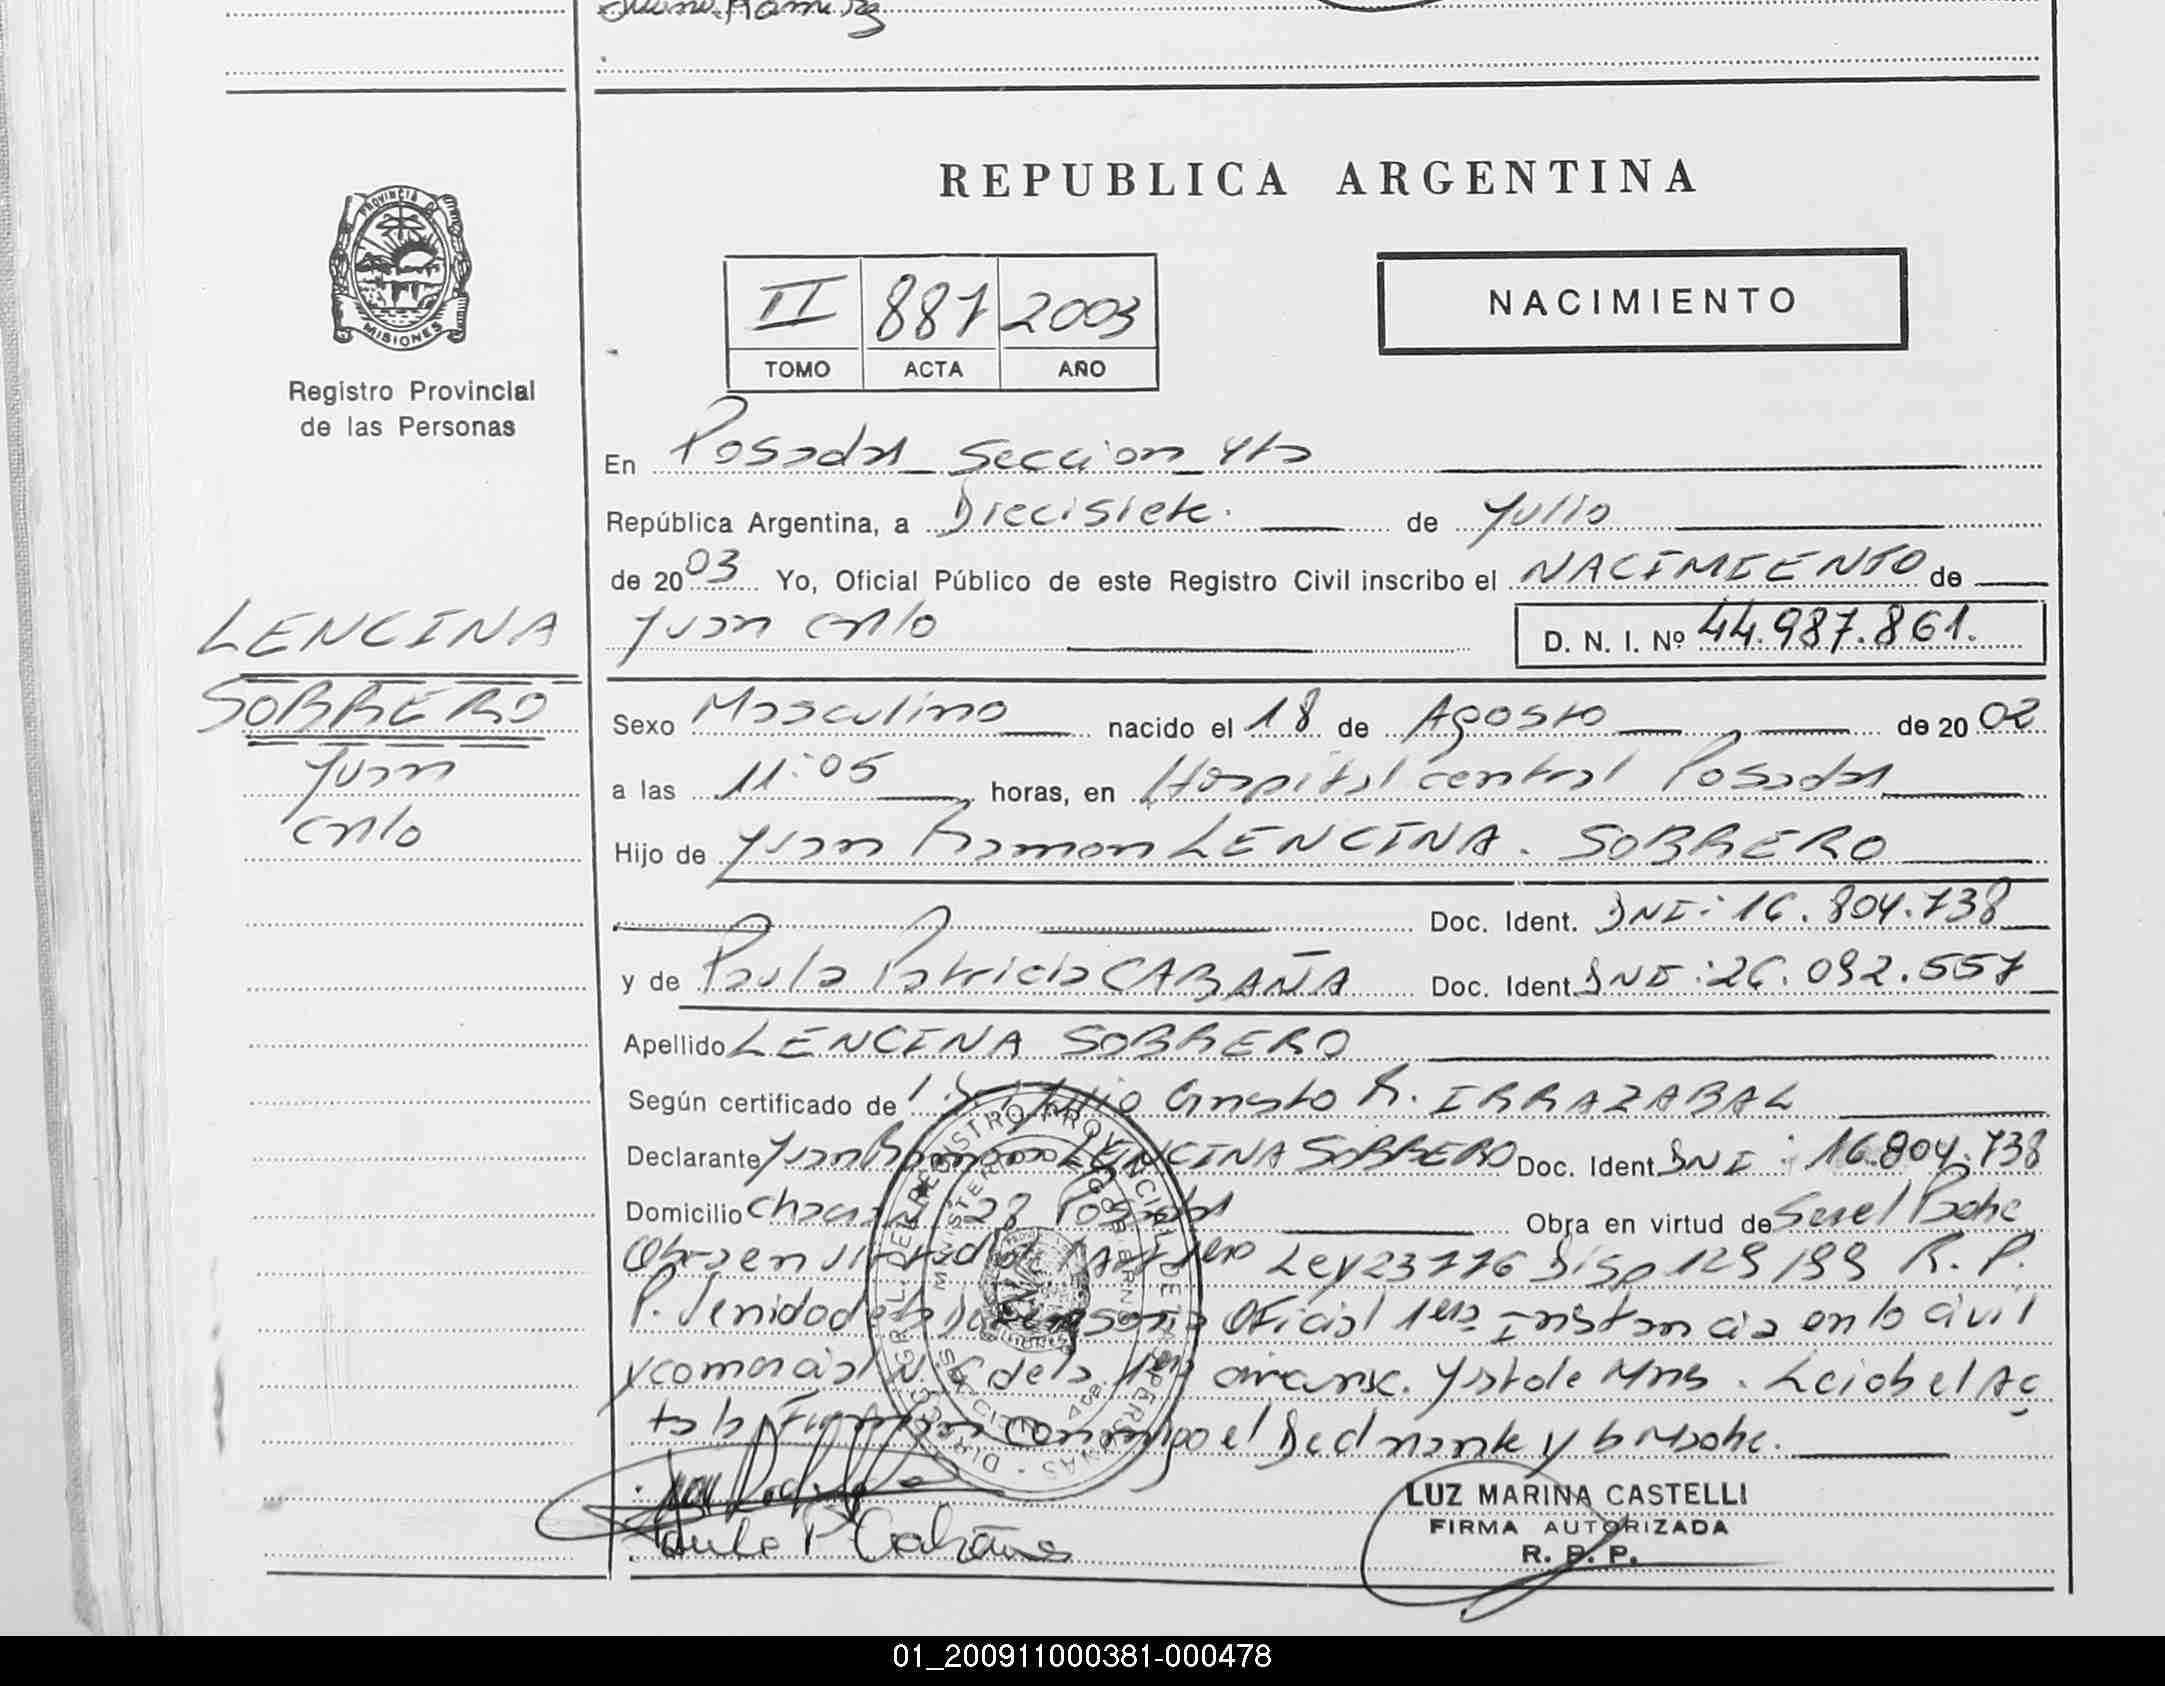 Ramirez
REPUBLICA ARGENTINA
PROVINCIA DE
MISIONES
Registro Provincial
de las Personas
II 887 2003
TOMO ACTA AÑO
NACIMIENTO
En Posadas Seccion 4ta
República Argentina, a Diecisiete de Julio
de 2003 Yo, Oficial Público de este Registro Civil inscribo el NACIMIENTO de
Juan Carlo
D. N. I. Nº 44.987.861.
LENCINA
SOBRERO
Juan
Carlo
Sexo Masculino nacido el 18 de Agosto de 2002
a las 11:05 horas, en Hospital central Posadas
Hijo de Juan Ramon LENCINA. SOBRERO
Doc. Ident. DNI: 16.804.738
y de Paula Patricia CABAÑA Doc. Ident DNI: 26.092.557
Apellido LENCINA SOBRERO
Según certificado de R. IRRAZABAL
Declarante Juan Ramon LENCINA SOBRERO Doc. Ident DNI: 16.804.738
Domicilio Posadas Obra en virtud de
Obra en Ley 23776 Disp 129/99 R. P.
P. Oficial 1era Instancia en lo civil
y comercial de la 1era
conmigo el Declarante y la Madre.
Paula P Cabaña
LUZ MARINA CASTELLI
FIRMA AUTORIZADA
R. P. P.
01_200911000381-000478